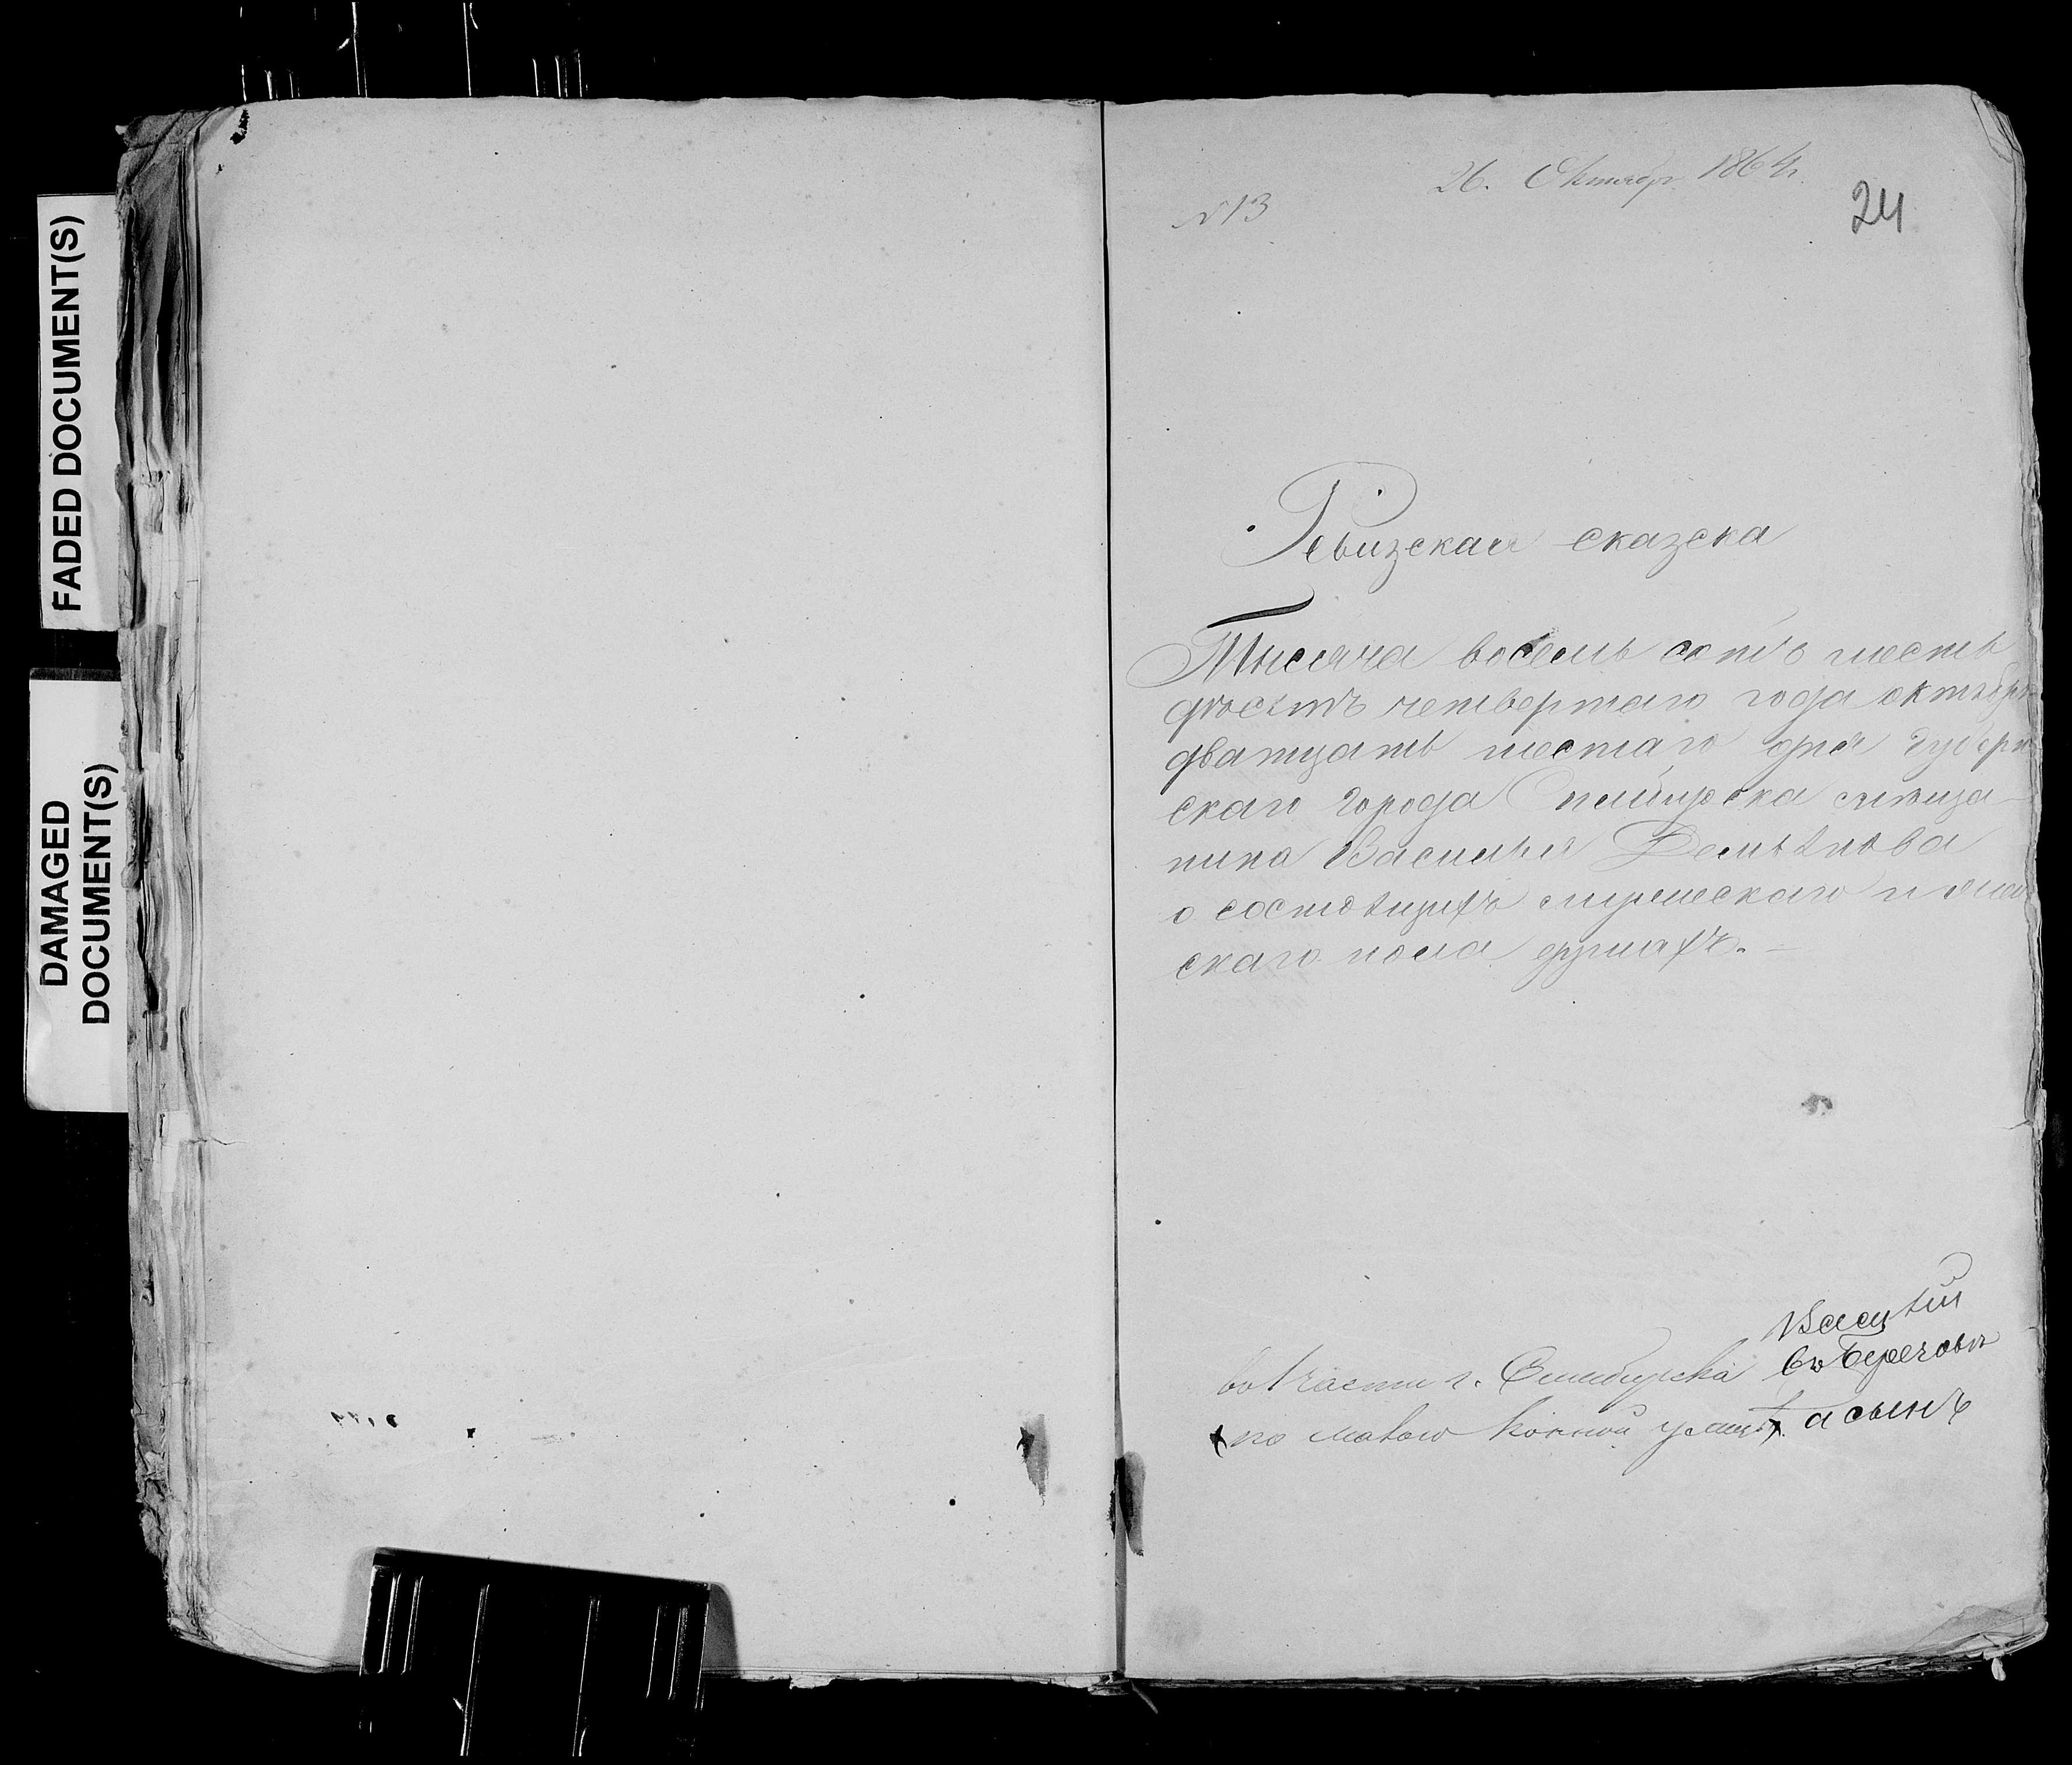 FADED DOCUMENT(S)
DAMAGED
DOCUMENT(S)
26. Октябр. 1864 г.
№ 13
24
Ревизская сказска
Тысяча восемь сотъ шесть
дѣсятъ четвертаго года октября
дватцать шестаго дня Губерн
скаго города Симбирска мѣща-
нина Василья
о состоящихъ мужескаго и жен
скаго пола душахъ. —
Василий
части г. Симбирска
по Конной улице
а сынъ